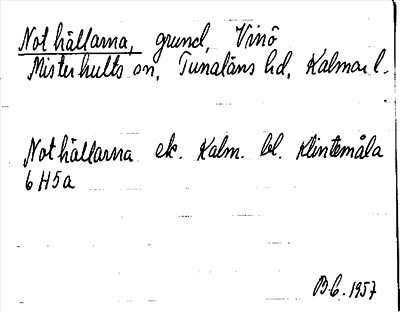 Nothällarna, grund, Vinö
Misterhults sn, Tunaläns hd, Kalmar l.
Nothällarna ek. Kalm. bl. Klintemåla
6H5a
B.C. 1957